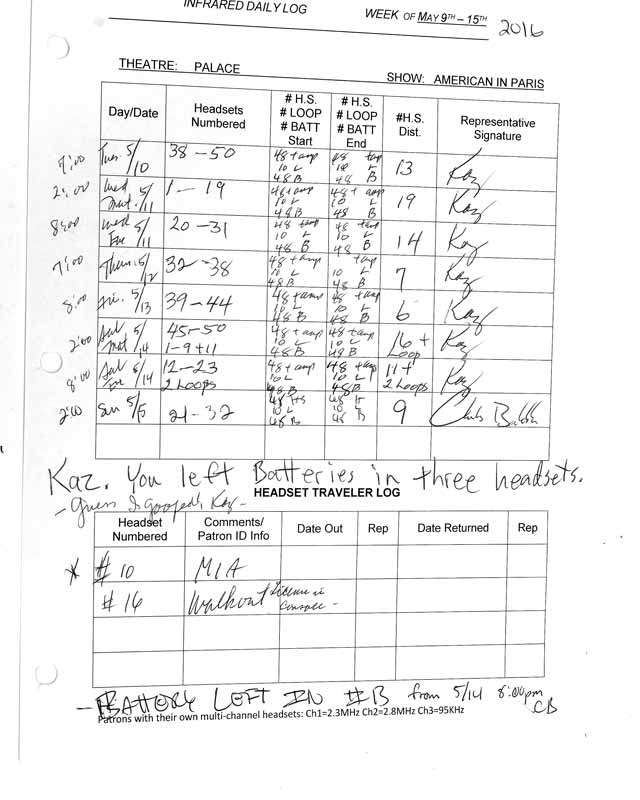 INFRARED DAILY LOG
WEEK OF MAY 9TH – 15TH 2016
THEATRE: PALACE
SHOW: AMERICAN IN PARIS
Day/Date Headsets Numbered # H.S. # LOOP # BATT Start # H.S. # LOOP # BATT End #H.S. Dist. Representative Signature
7:00 Tues. 5/10 38 – 50 48 + amp 10 L 48 B 48 + amp 10 L 48 B 13 Kaz
2:00 Wed Mat. 5/11 1 – 19 48 + amp 10 L 48 B 48 + amp 10 L 48 B 19 Kaz
8:00 Wed Eve 5/11 20 – 31 48 + amp 10 L 48 B 48 + amp 10 L 48 B 14 Kaz
7:00 Thurs. 5/12 32 – 38 48 + amp 10 L 48 B + amp 10 L 48 B 7 Kaz
8:00 Fri. 5/13 39 – 44 48 + amp 10 L 48 B 48 + amp 10 L 48 B 6 Kaz
2:00 Sat Mat 5/14 45 – 50 1 – 9 + 11 48 + amp 10 L 48 B 48 + amp 10 L 48 B 16 + Loop Kaz
8:00 Sat Eve 5/14 12 – 23 2 Loops 48 + amp 10 L 48 B 48 + amp 10 L 48 B 11 + 2 Loops Kaz
2:00 Sun 5/15 21 – 32 48 HS 10 L 48 B 48 H 10 L 48 B 9
Kaz. You left Batteries in three headsets.
– Guess I goofed, Kaz –
HEADSET TRAVELER LOG
Headset Numbered Comments/ Patron ID Info Date Out Rep Date Returned Rep
* # 10 MIA
# 16 Walkout License in Console –
– BATTERY LEFT IN #B from 5/14 8:00pm CB
Patrons with their own multi-channel headsets: Ch1=2.3MHz Ch2=2.8MHz Ch3=95KHz